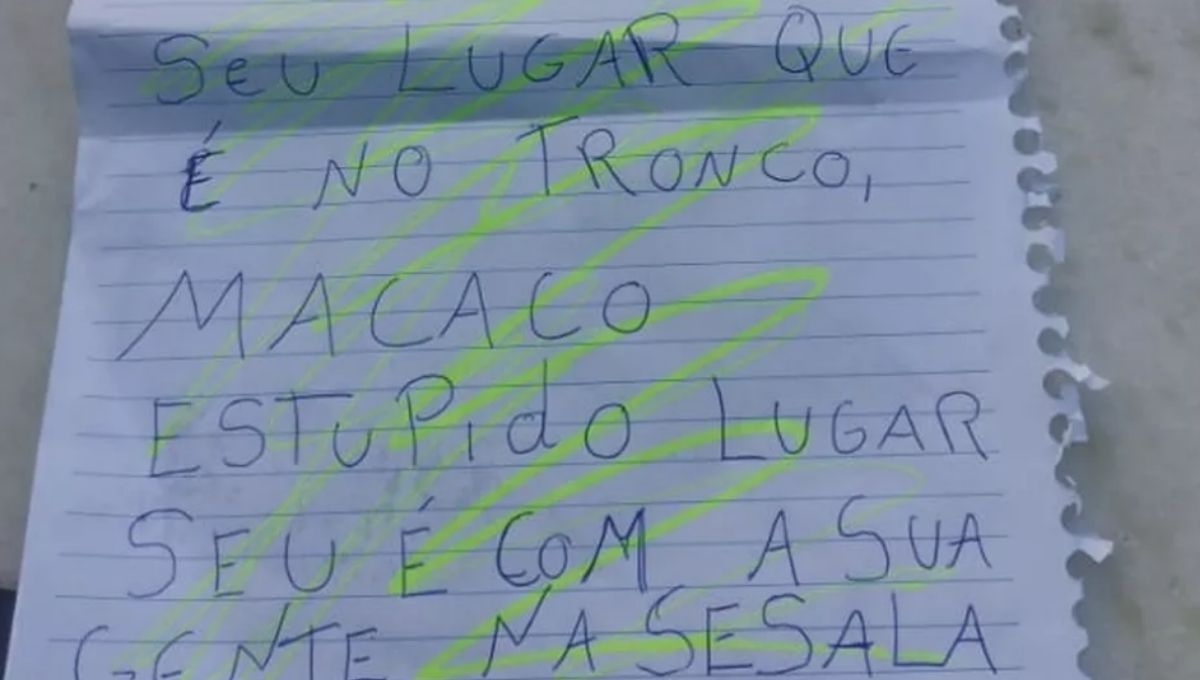 SEU LUGAR QUE
É NO TRONCO,
MACACO
ESTUPIdO LUGAR
SEU É COM A SUA
GENTE NA SESALA